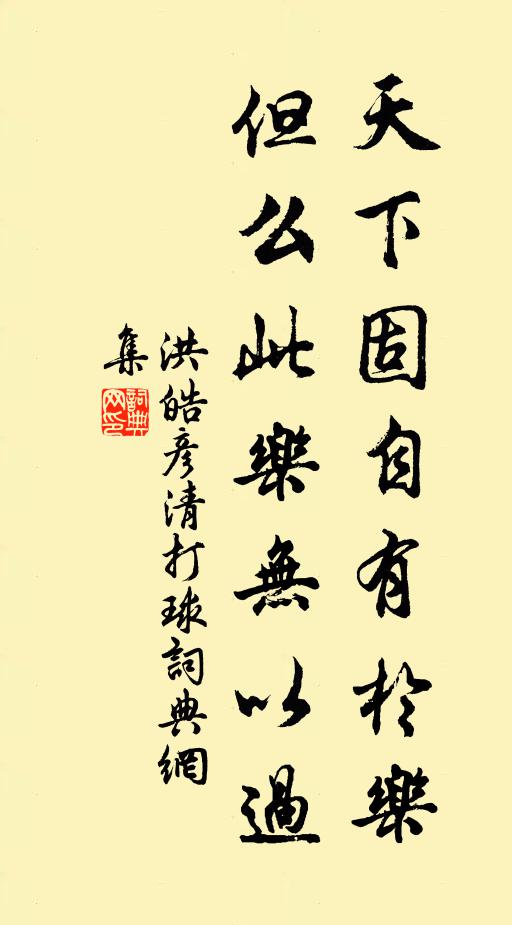 天下固自有於樂
但么此樂無以過
洪皓彥清打球詞典網
集
詞典
网印